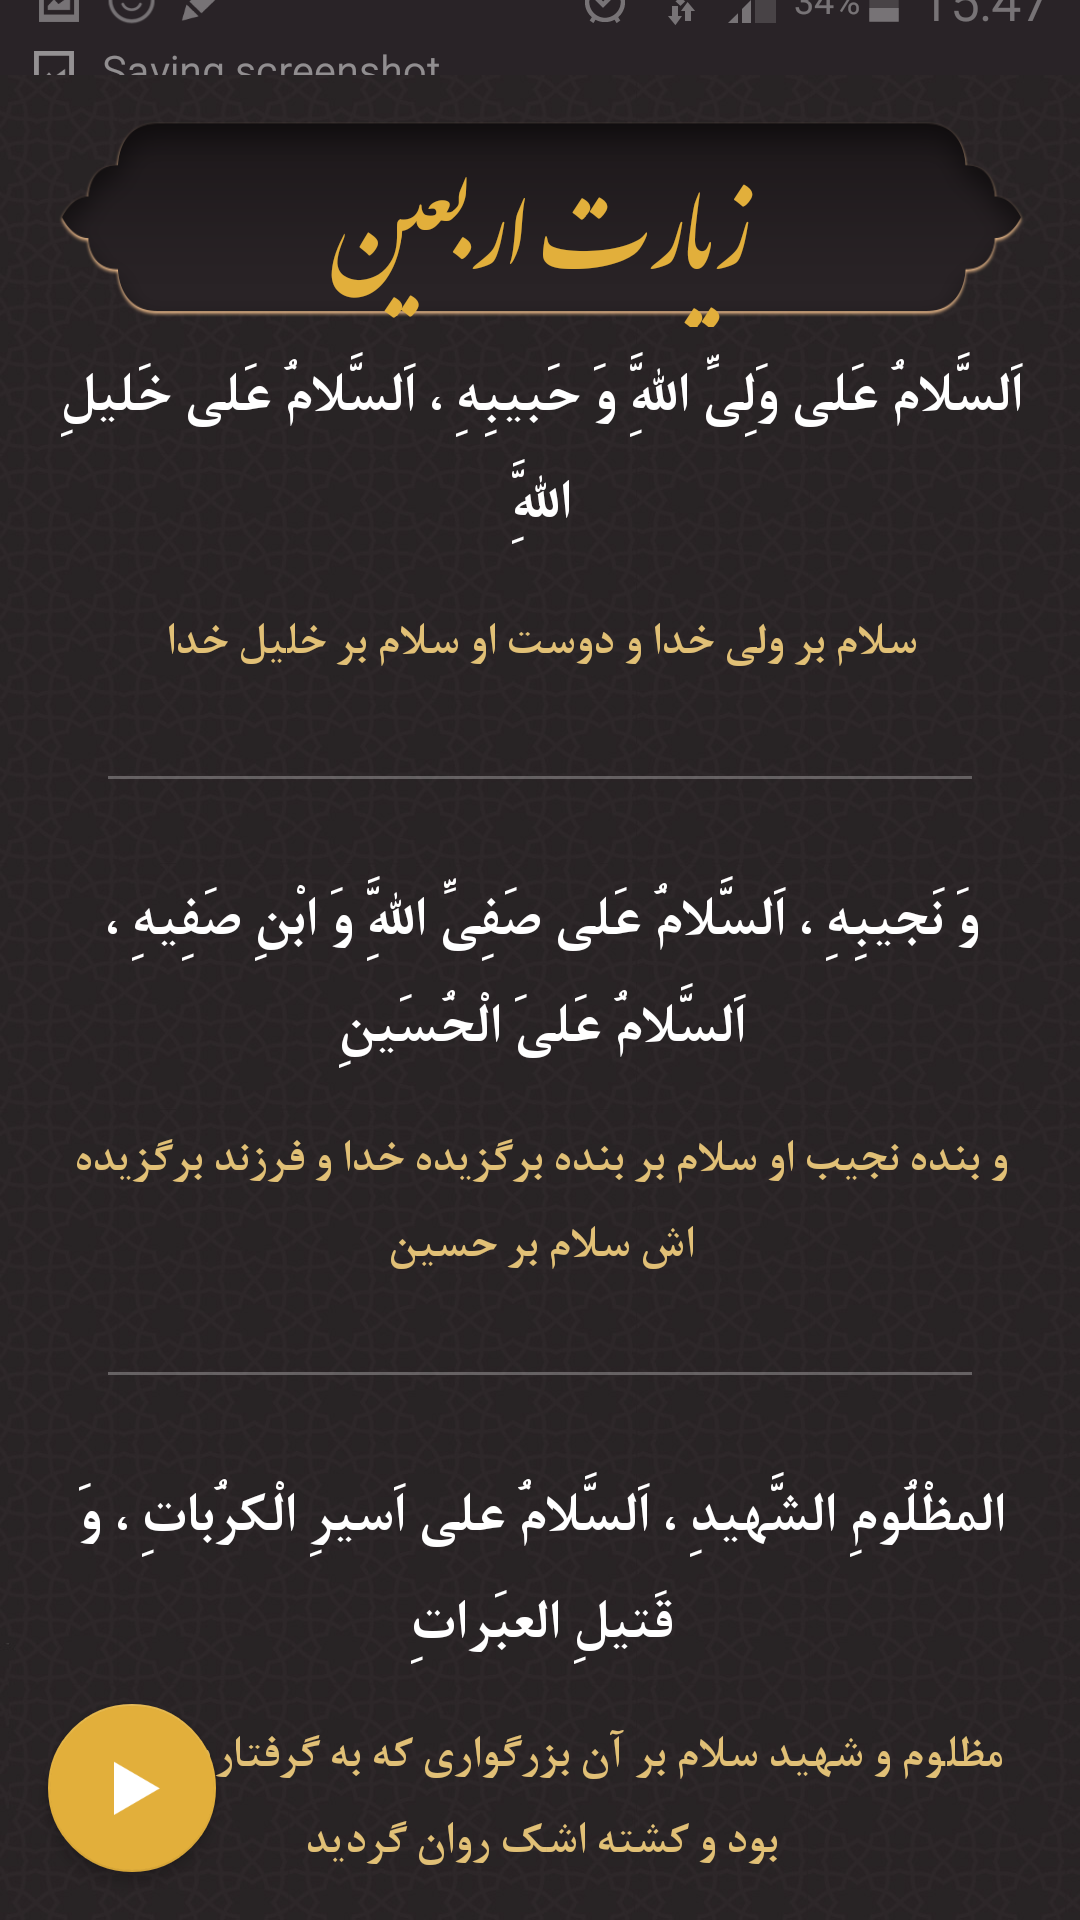 34% 15:47
Saving screenshot
زیارت اربعین
اَلسَّلامُ عَلی وَلِیِّ اللهَِّ وَ حَبیبِهِ ، اَلسَّلامُ عَلی خَلیلِ
اللهَِّ
سلام بر ولی خدا و دوست او سلام بر خلیل خدا
وَ نَجیبِهِ ، اَلسَّلامُ عَلی صَفِیِّ اللهَِّ وَ ابْنِ صَفِیهِ ،
اَلسَّلامُ عَلیَ الْحُسَینِ
و بنده نجیب او سلام بر بنده برگزیده خدا و فرزند برگزیده
اش سلام بر حسین
المظْلُومِ الشَّهیدِ ، اَلسَّلامُ علی اَسیرِ الْکرُباتِ ، وَ
قَتیلِ العبَراتِ
مظلوم و شهید سلام بر آن بزرگواری که به گرفتار
بود و کشته اشک روان گردید